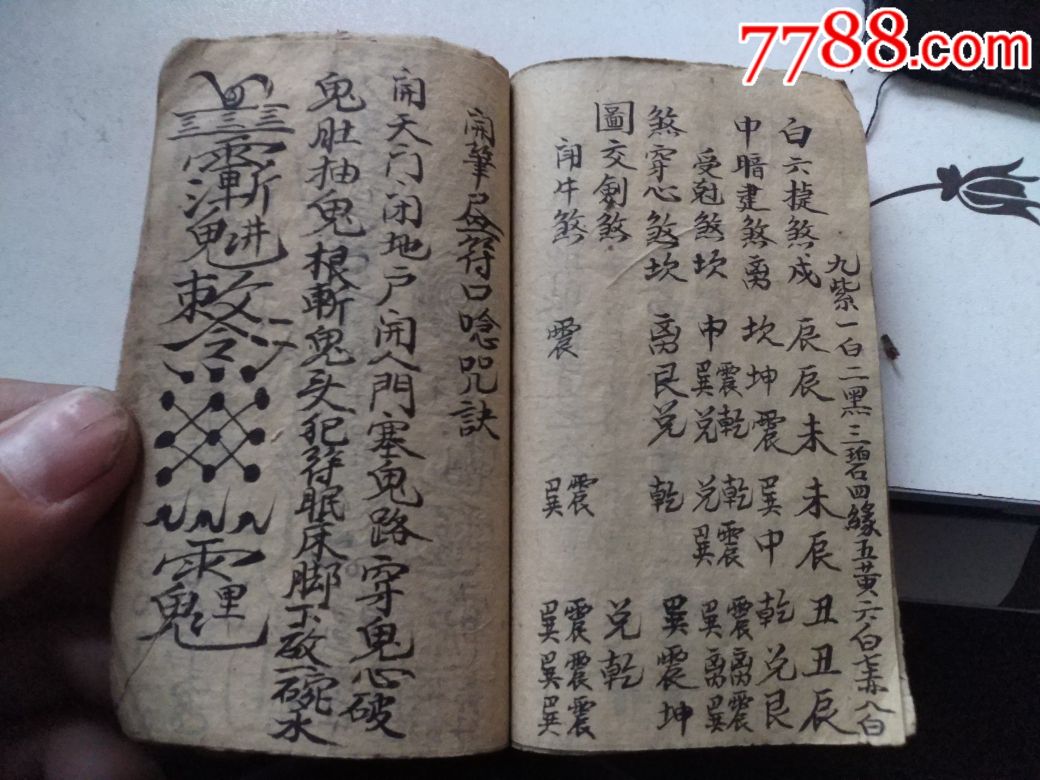 7788.com
九紫一白二黑三碧四緣五黃六白七赤八白
白六捷煞戍辰辰未未辰丑丑辰
中暗建煞离坎坤震巽中乾兌艮
受尅煞坎中巽震兌乾兌乾巽震巽震离离巽震
煞穿心煞坎离艮兌乾巽震坤
圖交劍煞兌乾
闭牛煞震巽震巽震巽震巽震
開筆口念咒訣
開天门闭地户開人門塞鬼路穿鬼心破
鬼肚抽鬼根斬鬼头犯符眠床脚下放一碗水